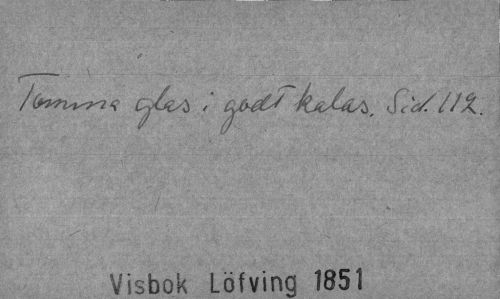 Tomma glas i godt kalas. Sid. 112.
Visbok Löfving 1851